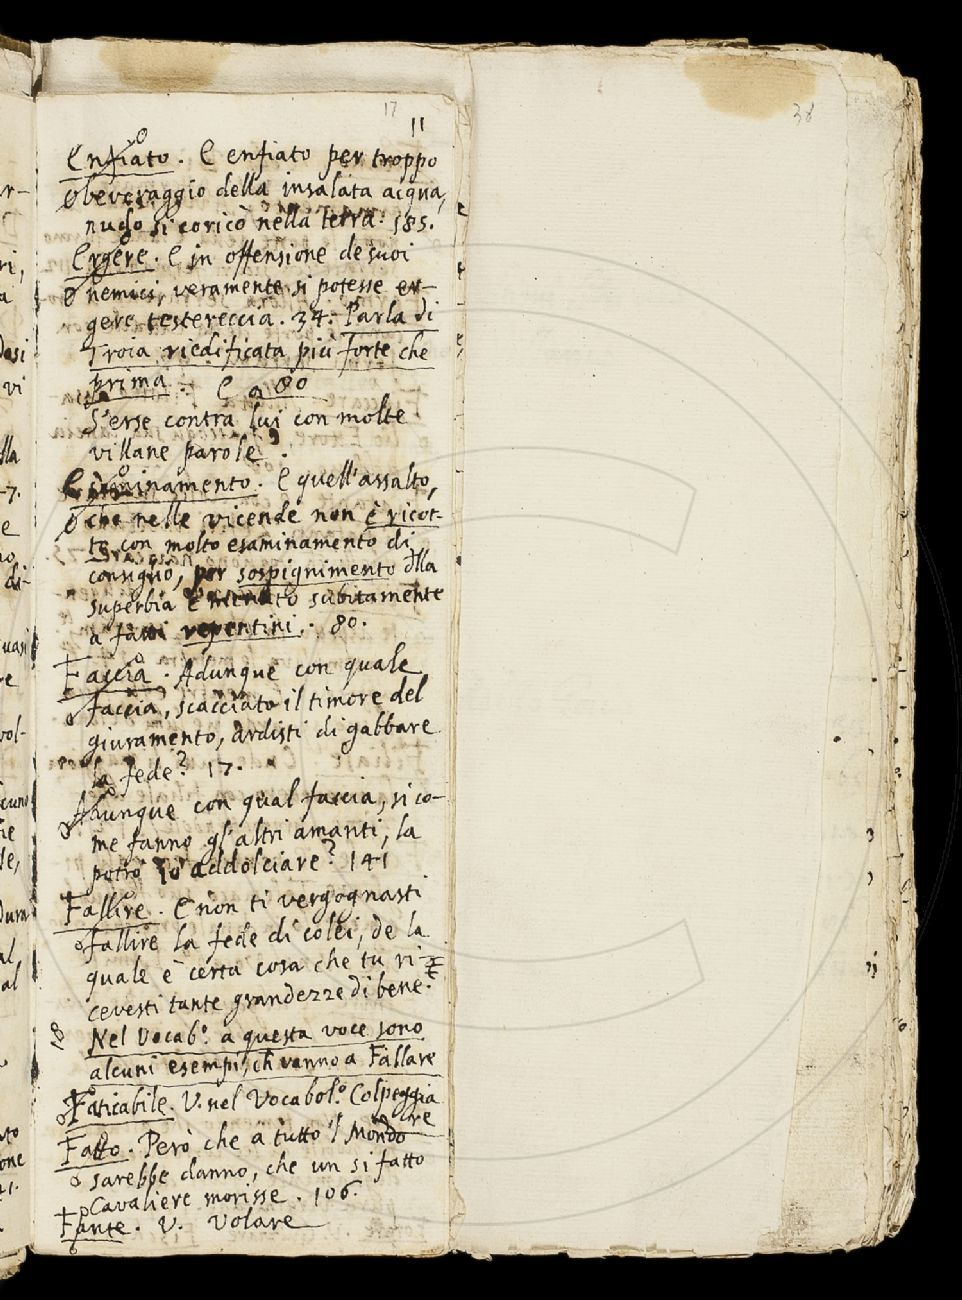 17
11
38
Enfiato. E enfiato per troppo
beveraggio della insalata acqua,
nudo si coricò nella terra. 185.
Ergere. E in offensione de suoi
nemici, veramente si potesse er-
gere testereccia. 34. Parla di
Troia riedificata più forte che
prima. E a 80
S'erse contra lui con molte
villane parole.
Esaminamento. E quell'assalto,
che nelle vicende non è ricot-
to con molto esaminamento di
consiglio, per sospignimento dlla
superbia è menato subitamente
a fatti repentini. 80.
Faccia. Adunque con quale
faccia, scacciato il timore del
giuramento, ardisti di gabbare
la fede? 17.
Adunque con qual faccia, si co-
me fanno gl'altri amanti, la
potrò io addolciare? 141
Fallire. E non ti vergognasti
fallire la fede di colei, de la
quale è certa cosa che tu ri-
cevesti tante grandezze di bene.
18
Nel Vocab.o a questa voce sono
alcuni esempi, ch vanno a Fallare
Faticabile. V. nel Vocabol.o Colpeggia
re
Fatto. Però che a tutto 'l Mondo
sarebbe danno, che un si fatto
Cavaliere morisse. 106.
Fante. V. Volare